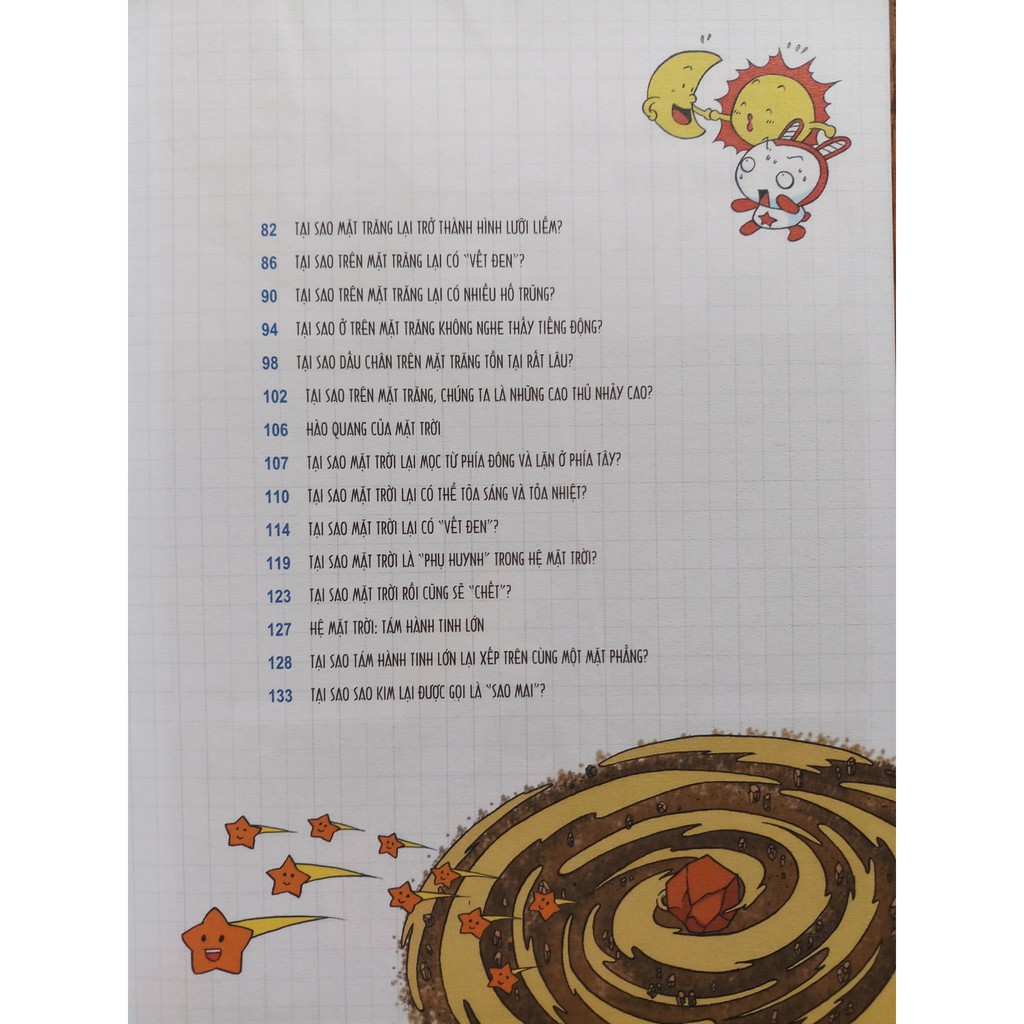 82 TẠI SAO MẶT TRĂNG LẠI TRỞ THÀNH HÌNH LƯỠI LIỀM?
86 TẠI SAO TRÊN MẶT TRĂNG LẠI CÓ "VẾT ĐEN"?
90 TẠI SAO TRÊN MẶT TRĂNG LẠI CÓ NHIỀU HỐ TRŨNG?
94 TẠI SAO Ở TRÊN MẶT TRĂNG KHÔNG NGHE THẤY TIẾNG ĐỘNG?
98 TẠI SAO DẤU CHÂN TRÊN MẶT TRĂNG TỒN TẠI RẤT LÂU?
102 TẠI SAO TRÊN MẶT TRĂNG, CHÚNG TA LÀ NHỮNG CAO THỦ NHẢY CAO?
106 HÀO QUANG CỦA MẶT TRỜI
107 TẠI SAO MẶT TRỜI LẠI MỌC TỪ PHÍA ĐÔNG VÀ LẶN Ở PHÍA TÂY?
110 TẠI SAO MẶT TRỜI LẠI CÓ THỂ TỎA SÁNG VÀ TỎA NHIỆT?
114 TẠI SAO MẶT TRỜI LẠI CÓ "VẾT ĐEN"?
119 TẠI SAO MẶT TRỜI LÀ "PHỤ HUYNH" TRONG HỆ MẶT TRỜI?
123 TẠI SAO MẶT TRỜI RỒI CŨNG SẼ "CHẾT"?
127 HỆ MẶT TRỜI: TÁM HÀNH TINH LỚN
128 TẠI SAO TÁM HÀNH TINH LỚN LẠI XẾP TRÊN CÙNG MỘT MẶT PHẲNG?
133 TẠI SAO SAO KIM LẠI ĐƯỢC GỌI LÀ "SAO MAI"?